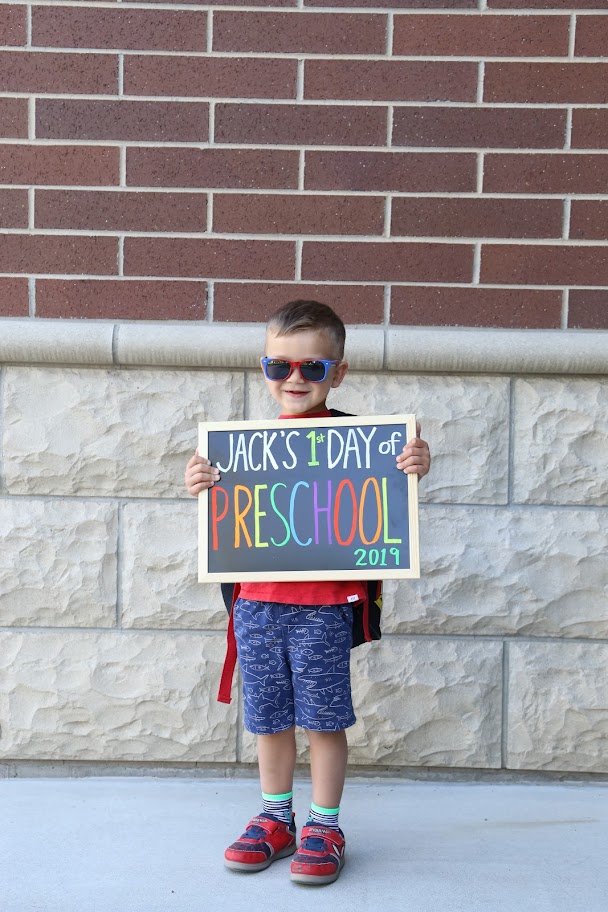 JACK'S 1st DAY of
PRESCHOOL
2019